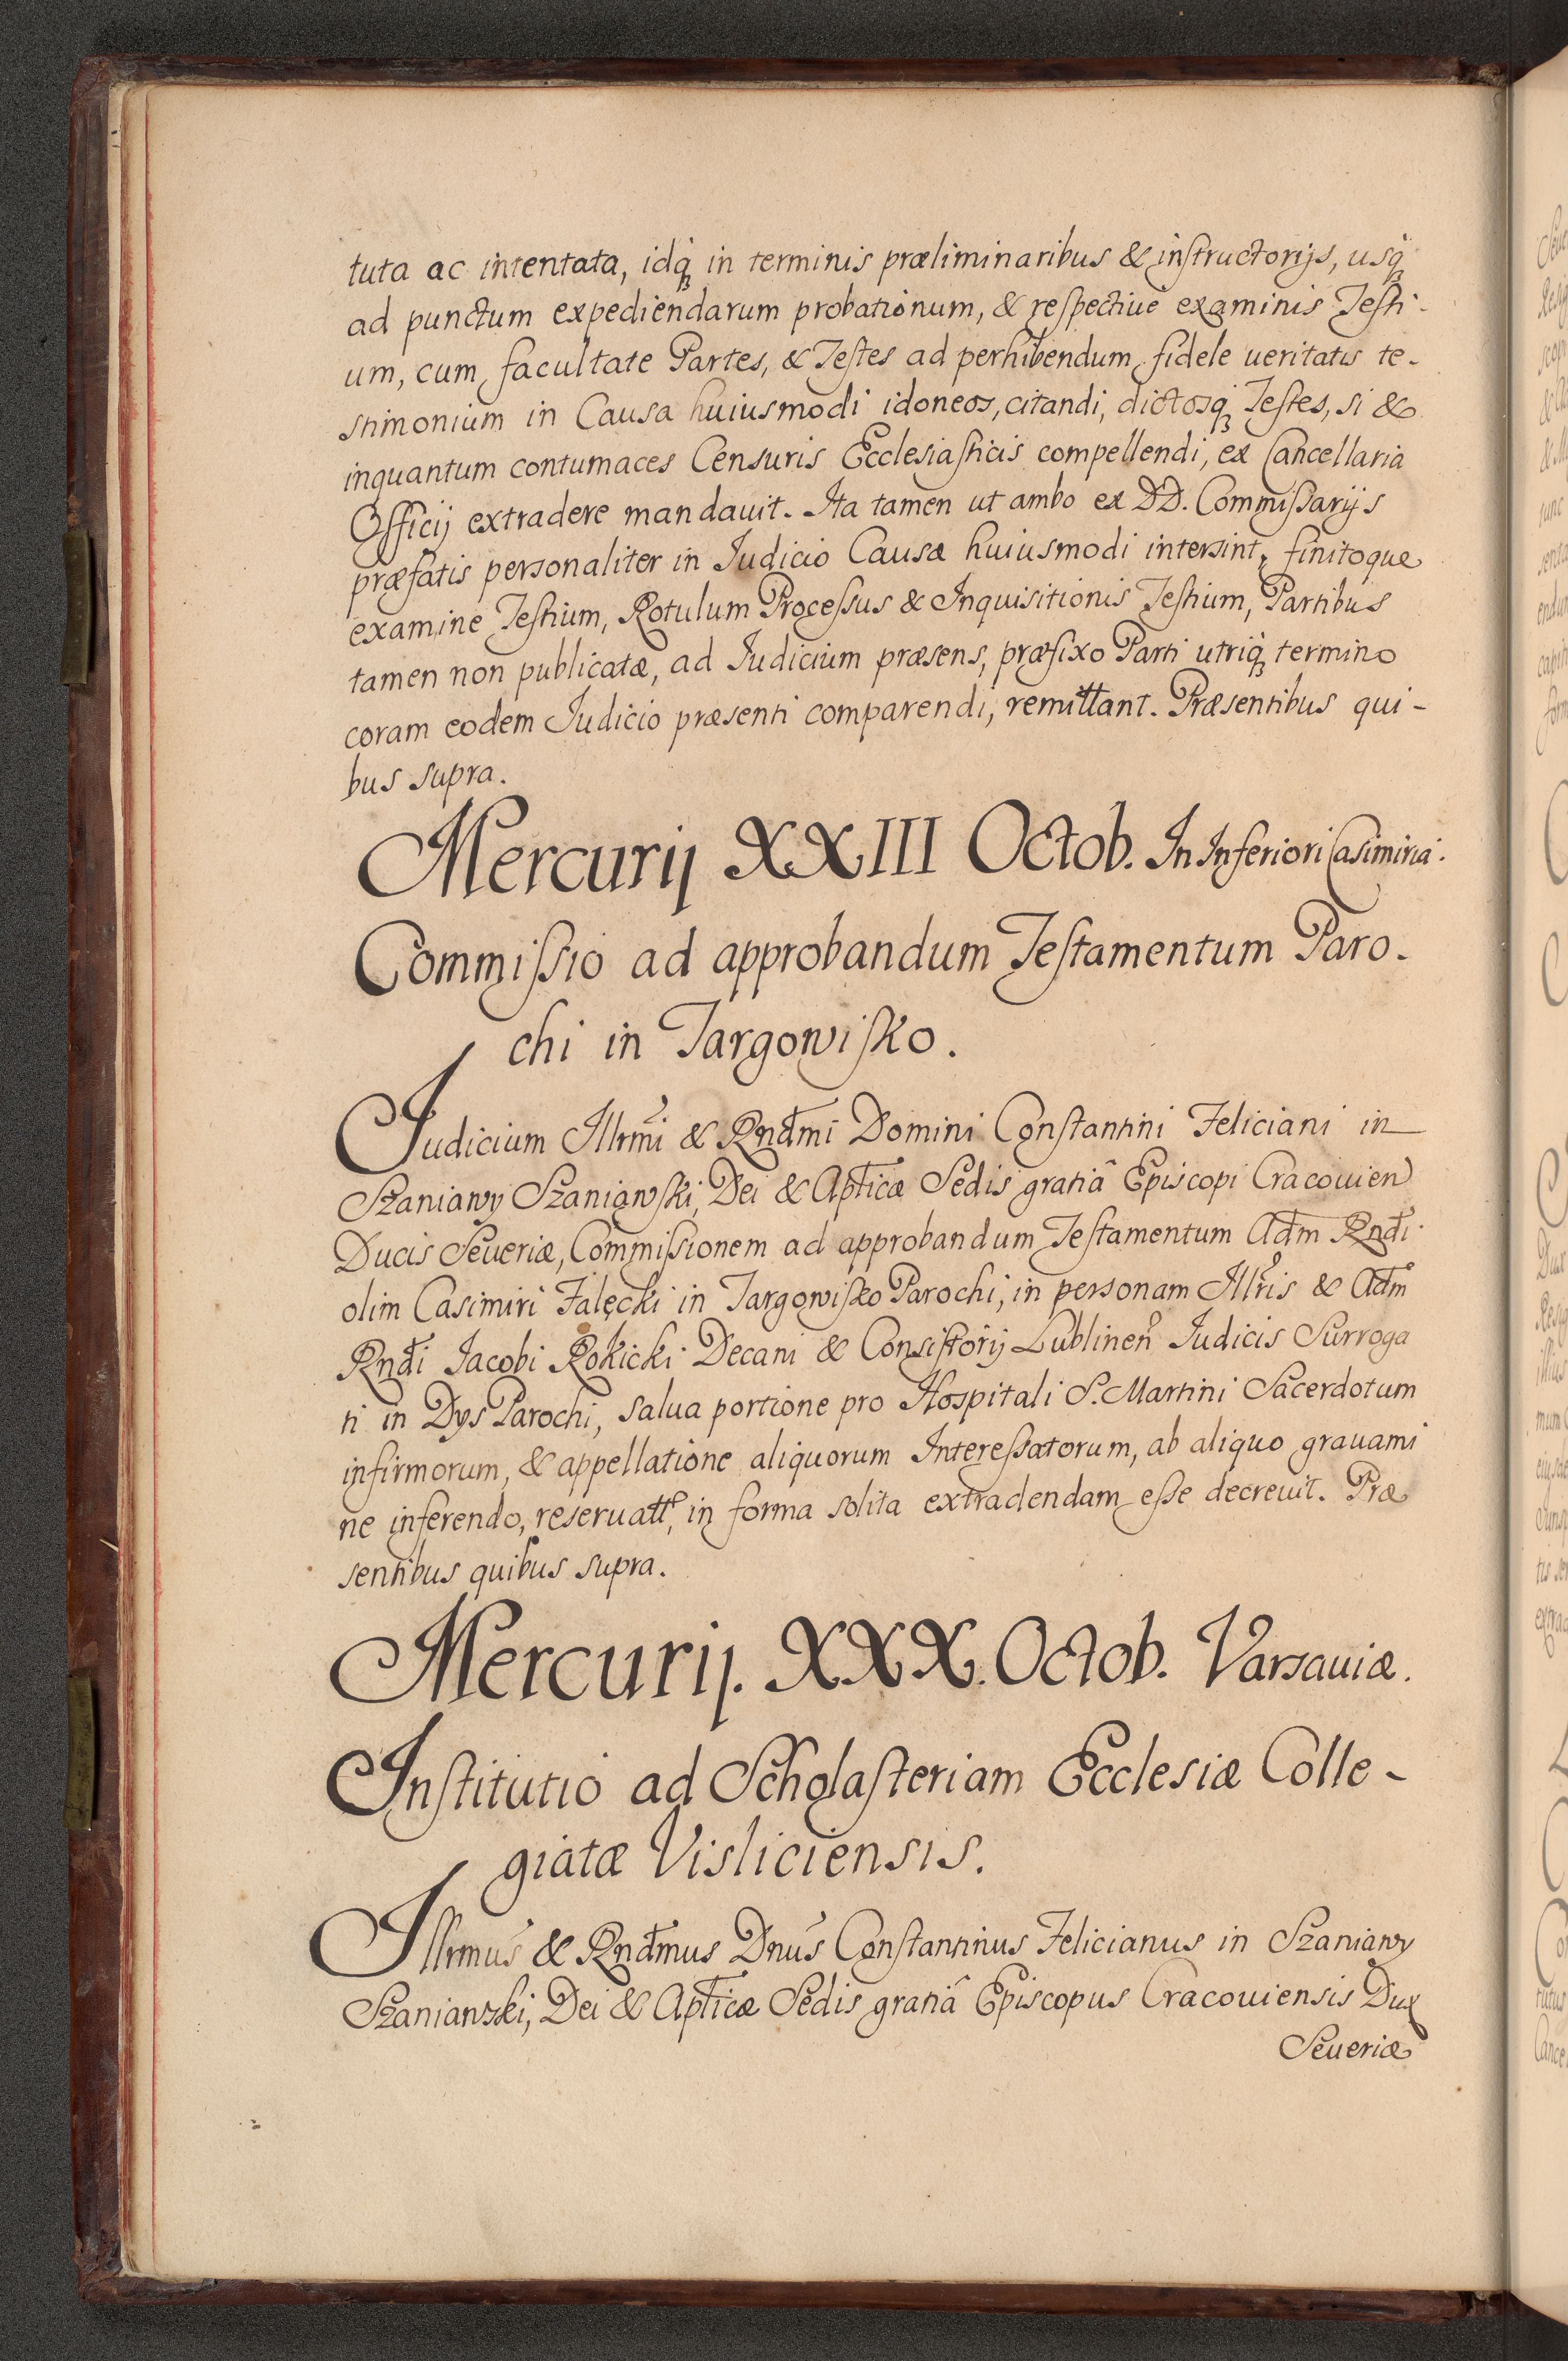 tuta ac intentata, idq́ꝫ in terminis præliminaribus & instructorijs, usq́ꝫ
ad punctum expediendarum probationum, & respectiue examinis Testi-
um, cum facultate Partes, & Testes ad perhibendum fidele ueritatis te-
stimonium in Causa huiusmodi idoneos, citandi, dictosq́ꝫ Testes, si &
inquantum contumaces Censuris Ecclesiasticis compellendi, ex Cancellaria
Officij extradere mandauit. Ita tamen ut ambo ex DD. Commissarijs
præfatis personaliter in Iudicio Causæ huiusmodi intersint, finitoque
examine Testium, Rotulum Processus & Inquisitionis Testium, Partibus
tamen non publicatæ, ad Iudicium præsens, præfixo Parti utriq́ꝫ termino
coram eodem Iudicio præsenti comparendi, remittant. Præsentibus qui-
bus supra.
Mercurij XXIII Octob. In Inferiori Casimiria.
Commissio ad approbandum Testamentum Paro-
chi in Targowisko.
Iudicium Illrm̃i & Rndm̃i Domini Constantini Feliciani in
Szaniawy Szaniawski, Dei & Aptĩcæ Sedis gratiâ Episcopi Cracouien
Ducis Seueriæ, Commissionem ad approbandum Testamentum Adm̃ Rndĩ
olim Casimiri Falęcki in Targowisko Parochi, in personam Illr̃is & Adm̃
Rndĩ Jacobi Rokicki Decani & Consistorij Lublineñ Iudicis Surroga
ti in Dys Parochi, salua portione pro Hospitali S. Martini Sacerdotum
infirmorum, & appellatione aliquorum Interessatorum, ab aliquo grauami
ne inferendo, reseruatt̃, in forma solita extradendam esse decreuit. Præ
sentibus quibus supra.
Mercurij. XXX. Octob. Varsauiæ.
Institutio ad Scholasteriam Ecclesiæ Colle-
giatæ Visliciensis.
Illrmus̃ & Rndm̃us Dnus̃ Constantinus Felicianus in Szaniawy
Szaniawski, Dei & Aptĩcæ Sedis gratiâ Episcopus Cracouiensis Dux
Seueriæ